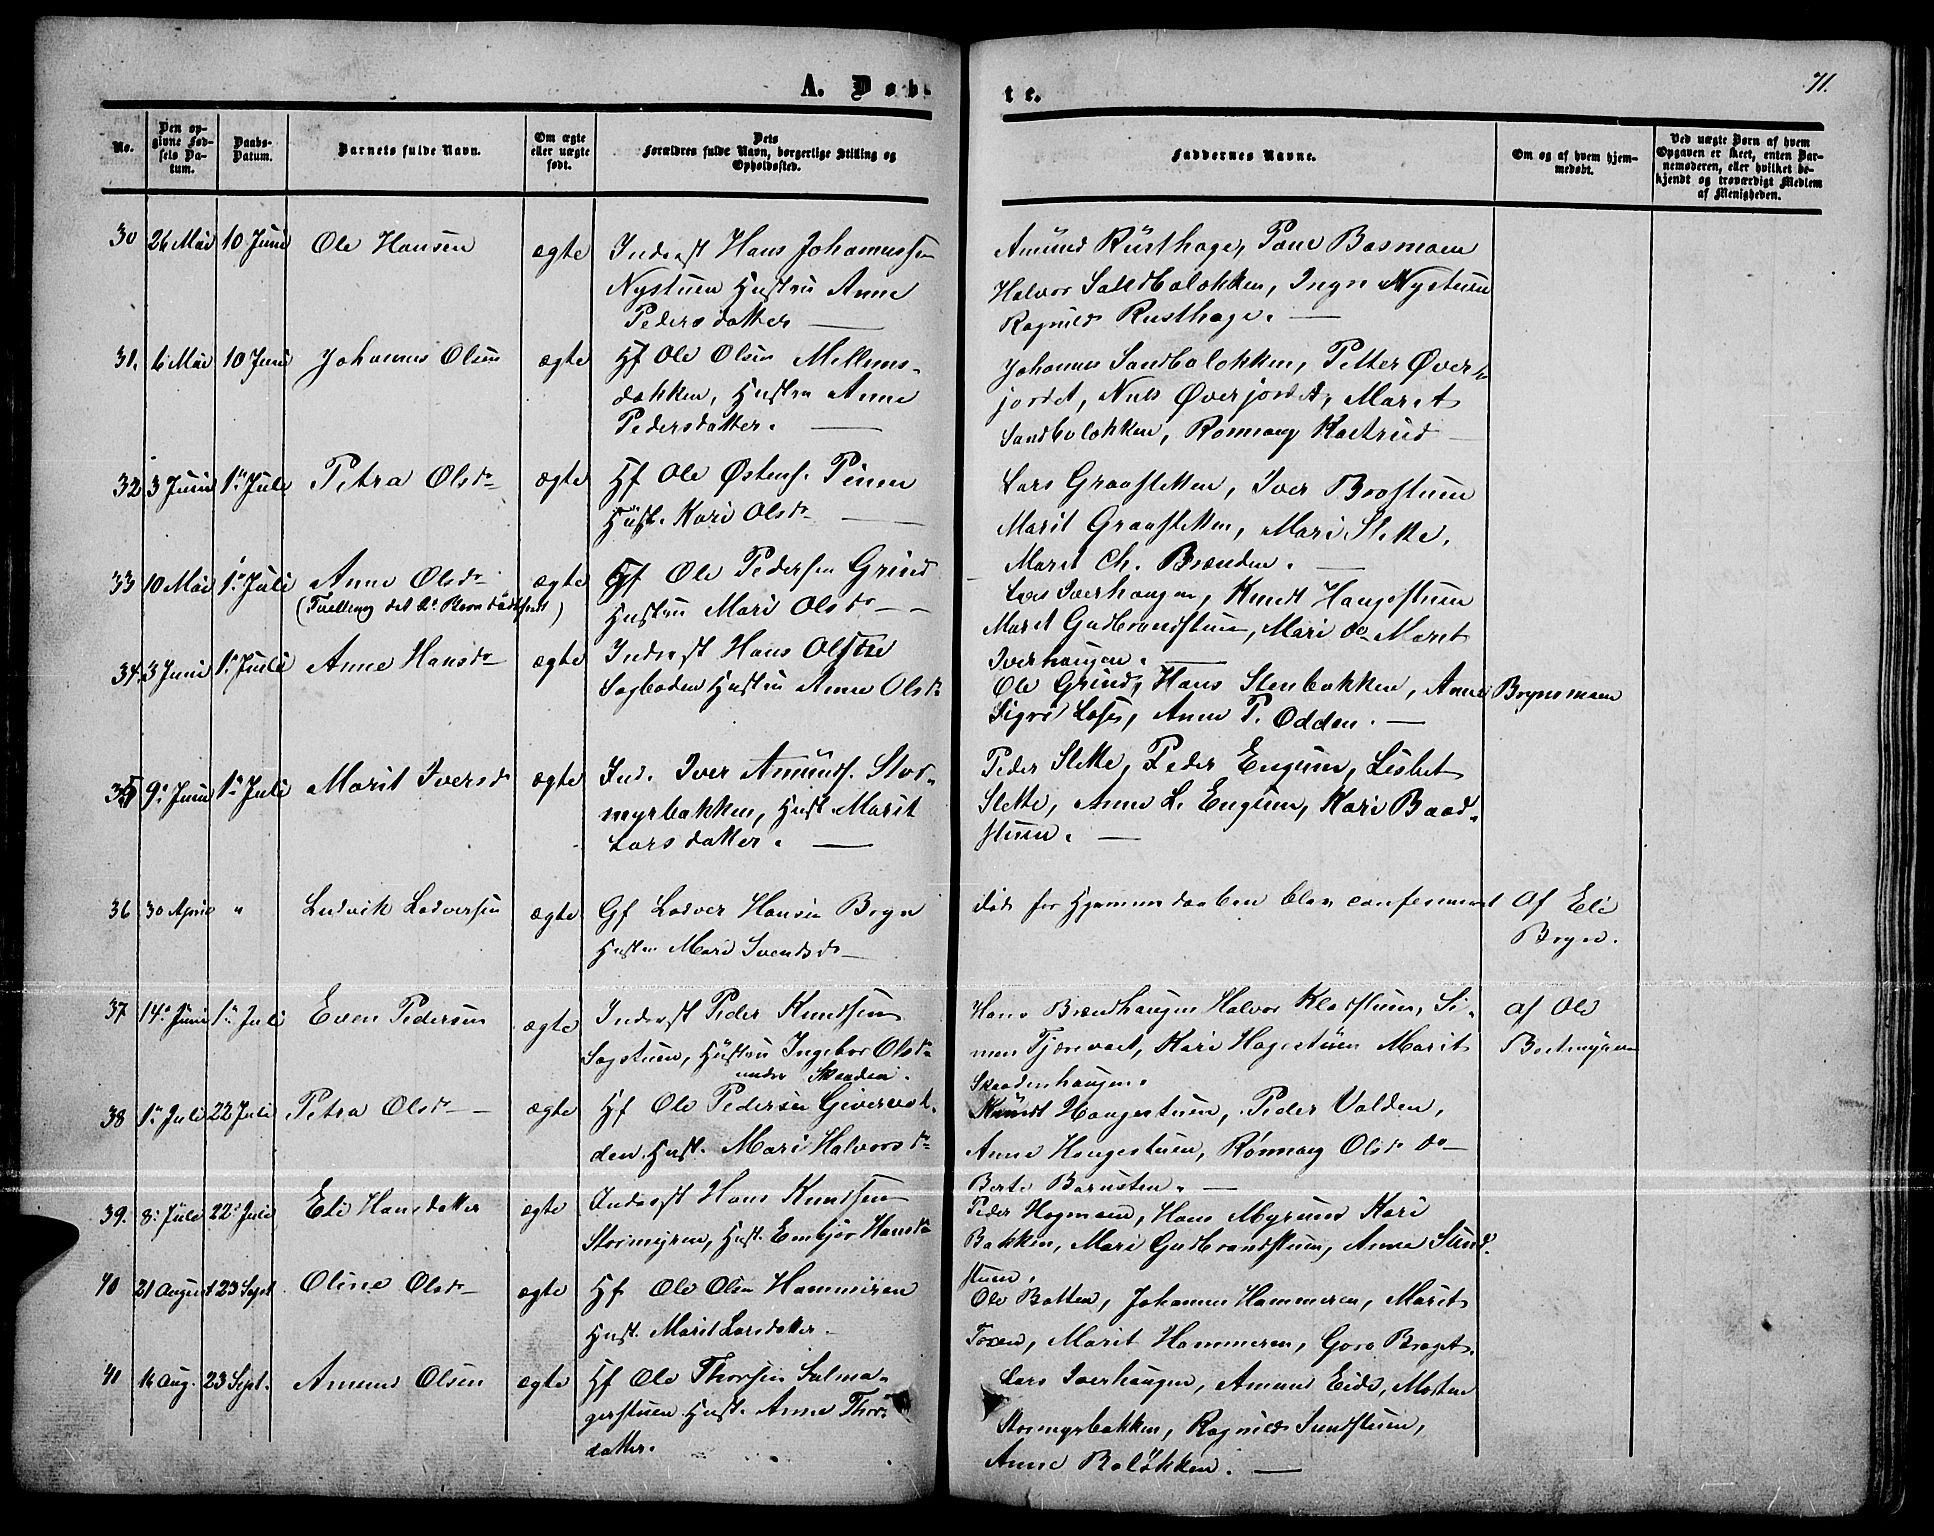 A. Døb-
te.
71.
No.
Den op-
givne Fød-
sels Da-
tum.
Daabs-
Datum.
Barnets fulde Navn.
Om ægte
eller uægte
født.
Dets
Forældres fulde Navn, borgerlige Stilling og
Opholdssted.
Faddernes Navne.
Om og af hvem hjem-
medøbt.
Ved uægte Børn af hvem
Opgaven er skeet, enten Bar-
nemoderen, eller hvilket be-
kjendt og troværdigt Medlem
af Menigheden.
30 26 Mai 10 Juni Ole Hansen ægte Inderst Hans Johannessen
Nystuen Hustru Anne
Pedersdatter —
Amund Rusthage, Pane Basmoen
Halvor Sandbaløkken, Ingri Nystuen
Ragnild Rusthage. —
31. 6 Mai 10 Juni Johannes Olsen ægte Hf Ole Olsen Mellems-
løkken, Hustru Anne
Pedersdatter. —
Johannes Sandbaløkken, Petter Øver-
jordet, Niels Øverjordet, Marit
Sandbaløkken, Rønnaug Kastrud —
32 3 Juni 1e Juli Petra Olsdr ægte Hf Ole Østens.
Hust. Kari Olsdr —
Lars Graasletten, Iver Brostuen
Marit Graasletten, Mari Slette,
Marit Ch. Brænden. —
33 10 Mai 1e Juli Anne Olsdr ægte Gf Ole Pedersen Grind
(Tvilling det 2e Barn dødfødt)
Hustru Mari Olsdr —
Lars Iverhaugen, Knudt Haugestuen
Marit Gudbrandstuen, Mari do Marit
Iverhaugen. —
34. 3 Juni 1e Juli Anne Hansdr ægte Inderst Hans Olsen
Sagbaden Hustru Anne Olsdr
Ole Grind, Hans Stenbakken, Anne Brynsmoen
Sigri Lose, Anne P. Odden. —
35 9e Juni 1e Juli Marit Iversdr ægte Ind. Iver Amunds. Stor-
myrbakken, Hust Marit
Larsdatter. —
Peder Slette, Peder Engum, Lisbet
Slette, Anne L. Engum, Kari Baad-
stuen. —
36 30 April " Ludvik Lodversen ægte Gf Lodver Hansen Bryn
Hustru Mari Svendsdr —
død før Hjemmedaaben blev confirmeret Af Eli
Bryn.
37 14e Juni 1e Juli Even Pedersen ægte Inderst Peder Knudsen
Sagstuen, Hustru Ingebor Olsdr
under Skaaden.
Hans Brændhaugen Halvor Kladstuen, Si-
men Tjærevaet, Kari Hagestuen Marit
Skaadenhaugen.
af Ole
38 1e Juli 22 Juli Petra Olsdr — ægte Hf Ole Pedersen Givervol-
den Hust. Mari Halvorsdr
Knudt Haugestuen, Peder Volden,
Anne Haugestuen, Rønnaug Olsdr do —
Berte Barusten. —
39. 8e Juli 22e Juli Eli Hansdatter ægte Inderst Hans Knudsen
Stormyren, Hust. Embjør Hansdr
Peder Hagmoen, Hans Myrum Kari
Bakken, Mari Gudbrandstuen, Anne Sund-
stuen.
40 21 August 23 Sept Oline Olsdr — ægte Hf Ole Olsen Hammeren
Hust. Marit Larsdatter —
Ole Batten, Johannes Hammeren, Marit
Toren, Marit Hammeren, Goro Braget.
41 16 Aug. 23 Sept. Amund Olsen ægte Hf Ole Thorsen Salma-
gerstuen Hust. Anne Thors-
datter.
Lars Iverhaugen, Amund Eide, Morten
Stormyrbakken, Ragnild Sundstuen,
Anne Baløkken. —